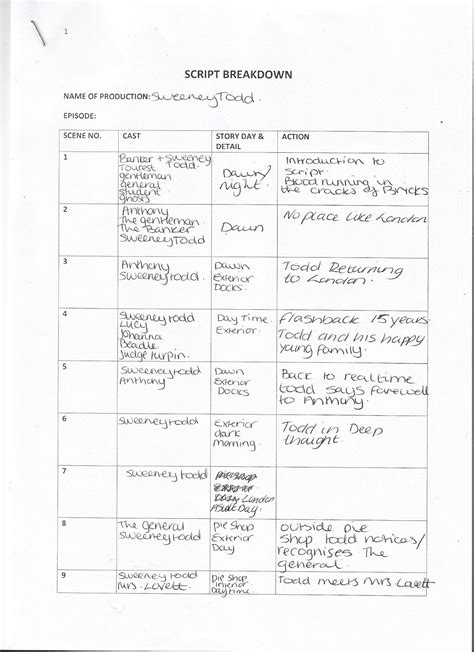 1
SCRIPT BREAKDOWN
NAME OF PRODUCTION: Sweeney Todd.
EPISODE:
SCENE NO. CAST STORY DAY & DETAIL ACTION
1
Banker + Sweeney
Tourest Todd
gentleman
general
student
ghosts
Dawn/
night.
Introduction to
script.
Blood running in
the cracks of Bricks
2
Anthony
The gentleman.
The Banker
Sweeney Todd
Dawn
No place like London
3
Anthony
Sweeney Todd.
Dawn
Exterior
Docks.
Todd Returning
to London.
4
Sweeney Todd
Lucy
Johanna
Beadle
Judge turpin.
Day Time.
Exterior.
flashback 15 years.
Todd and his happy
young family.
5
Sweeney Todd
Anthony
Dawn
Exterior
Docks
Back to realtime
todd says farewell
to Anthony.
6
Sweeney todd
Exterior
dark
morning.
Todd in Deep
thought.
7
Sweeney todd
London
Day.
8
The general
Sweeney todd
pie Shop
Exterior
Day
outside pie
shop todd notices/
recognises The
general.
9
Sweeney todd
Mrs. Lovett.
pie shop
interior
Daytime.
Todd meets Mrs Lovett